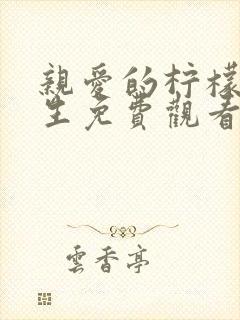 親愛的柠檬
生免費觀看
雲香亭